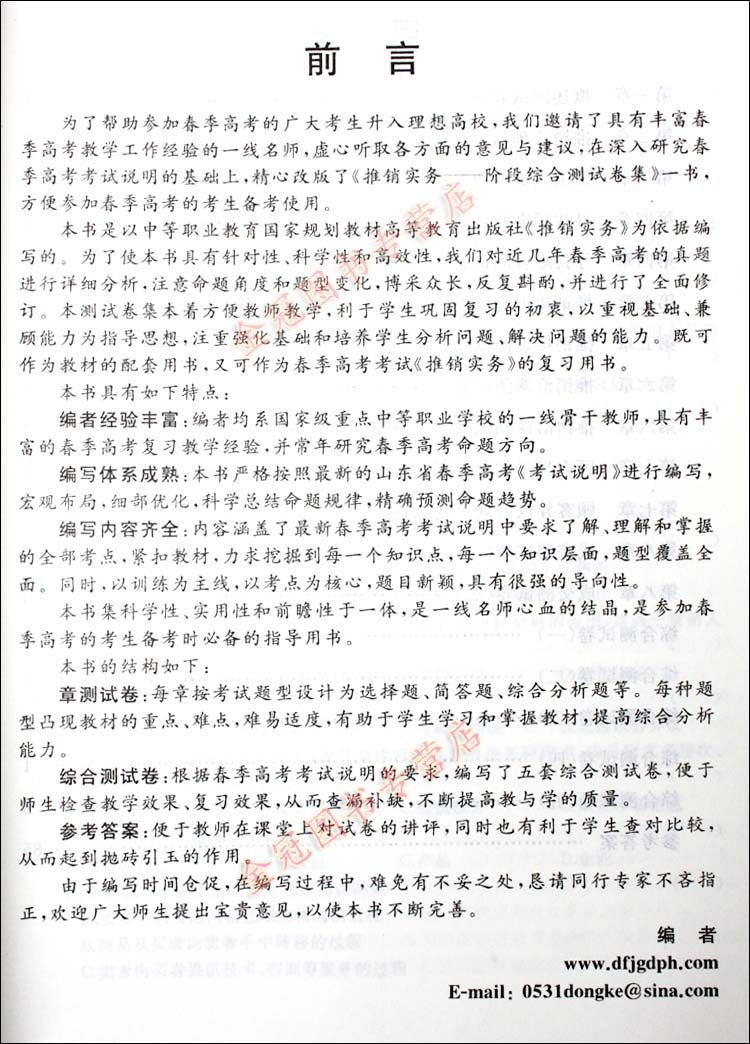 前 言
为了帮助参加春季高考的广大考生升入理想高校,我们邀请了具有丰富春
季高考教学工作经验的一线名师,虚心听取各方面的意见与建议,在深入研究春
季高考考试说明的基础上,精心改版了《推销实务——阶段综合测试卷集》一书,
方便参加春季高考的考生备考使用。
本书是以中等职业教育国家规划教材高等教育出版社《推销实务》为依据编
写的。为了使本书具有针对性、科学性和高效性,我们对近几年春季高考的真题
进行详细分析,注意命题角度和题型变化,博采众长,反复斟酌,并进行了全面修
订。本测试卷集本着方便教师教学,利于学生巩固复习的初衷,以重视基础、兼
顾能力为指导思想,注重强化基础和培养学生分析问题、解决问题的能力。既可
作为教材的配套用书,又可作为春季高考考试《推销实务》的复习用书。
本书具有如下特点:
编者经验丰富:编者均系国家级重点中等职业学校的一线骨干教师,具有丰
富的春季高考复习教学经验,并常年研究春季高考命题方向。
编写体系成熟:本书严格按照最新的山东省春季高考《考试说明》进行编写,
宏观布局,细部优化,科学总结命题规律,精确预测命题趋势。
编写内容齐全:内容涵盖了最新春季高考考试说明中要求了解、理解和掌握
的全部考点,紧扣教材,力求挖掘到每一个知识点,每一个知识层面,题型覆盖全
面。同时,以训练为主线,以考点为核心,题目新颖,具有很强的导向性。
本书集科学性、实用性和前瞻性于一体,是一线名师心血的结晶,是参加春
季高考的考生备考时必备的指导用书。
本书的结构如下:
章测试卷:每章按考试题型设计为选择题、简答题、综合分析题等。每种题
型凸现教材的重点、难点,难易适度,有助于学生学习和掌握教材,提高综合分析
能力。
综合测试卷:根据春季高考考试说明的要求,编写了五套综合测试卷,便于
师生检查教学效果、复习效果,从而查漏补缺,不断提高教与学的质量。
参考答案:便于教师在课堂上对试卷的讲评,同时也有利于学生查对比较,
从而起到抛砖引玉的作用。
由于编写时间仓促,在编写过程中,难免有不妥之处,恳请同行专家不吝指
正,欢迎广大师生提出宝贵意见,以使本书不断完善。
编 者
www.dfjgdph.com
E-mail: 0531dongke@sina.com
金冠图书专营店
金冠图书专营店